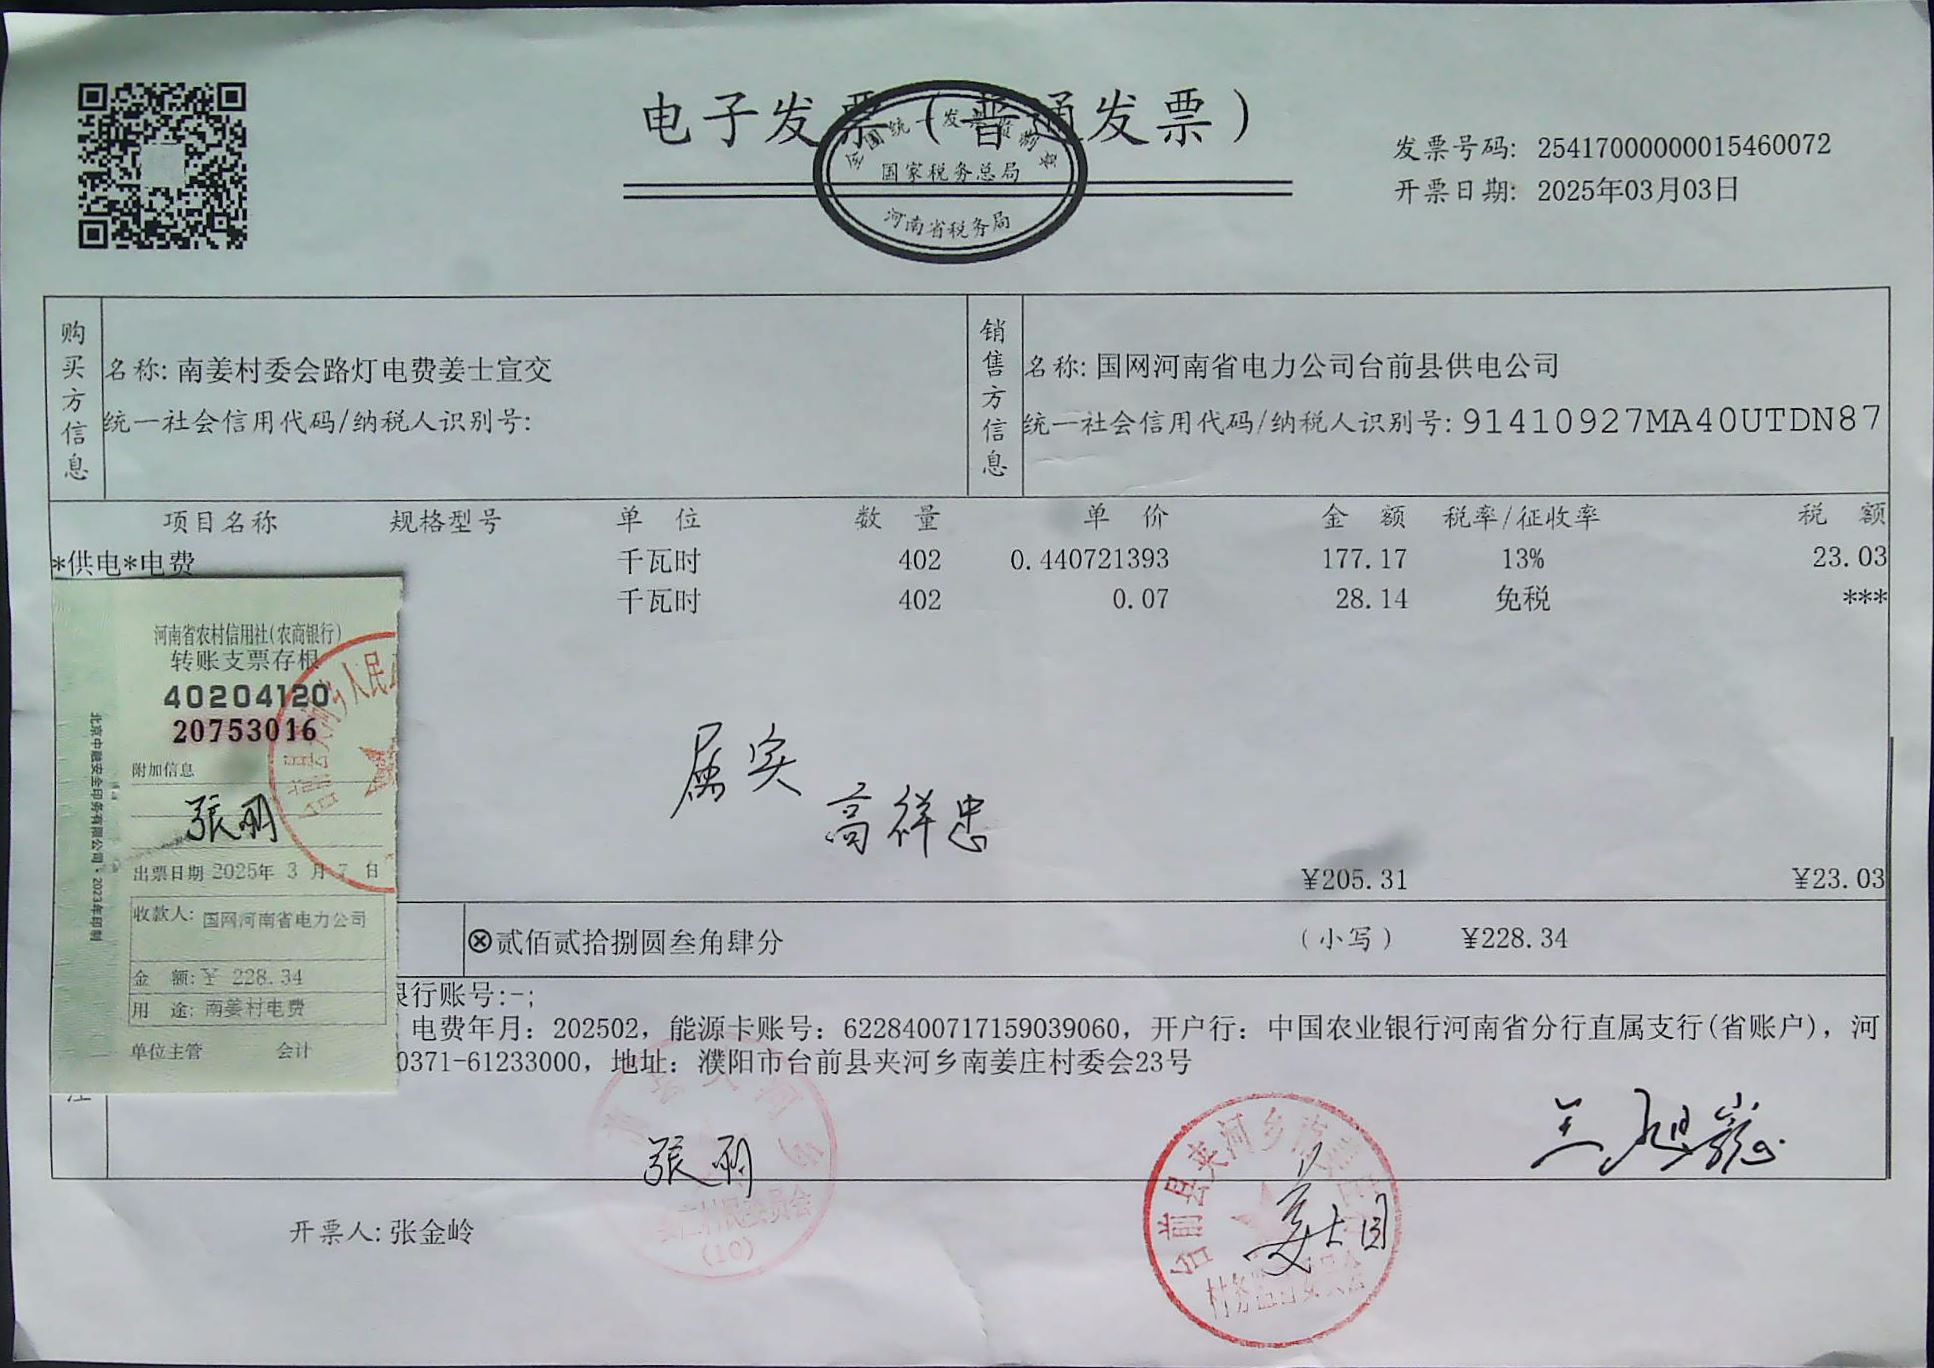 电子发票（普通发票）
全国统一发票监制章
国家税务总局
河南省税务局
发票号码: 25417000000015460072
开票日期: 2025年03月03日
购买方信息
名称: 南姜村委会路灯电费姜士宣交
统一社会信用代码/纳税人识别号:
销售方信息
名称: 国网河南省电力公司台前县供电公司
统一社会信用代码/纳税人识别号: 91410927MA40UTDN87
项目名称 规格型号 单 位 数 量 单 价 金 额 税率/征收率 税 额
*供电*电费 千瓦时 402 0.440721393 177.17 13% 23.03
千瓦时 402 0.07 28.14 免税 ***
河南省农村信用社(农商银行)
转账支票存根
40204120
20753016
附加信息
张丽
出票日期 2025年 3 月 7 日
收款人: 国网河南省电力公司
金 额: ¥ 228.34
用 途: 南姜村电费
单位主管 会计
北京中融安全印务有限公司·2023年印制
属实
高祥忠
¥205.31 ¥23.03
ⓧ贰佰贰拾捌圆叁角肆分 (小写) ¥228.34
银行账号:-;
电费年月: 202502, 能源卡账号: 6228400717159039060, 开户行: 中国农业银行河南省分行直属支行(省账户), 河
0371-61233000, 地址: 濮阳市台前县夹河乡南姜庄村委会23号
注
张丽
台前县夹河乡南姜庄
开票人: 张金岭
(10)